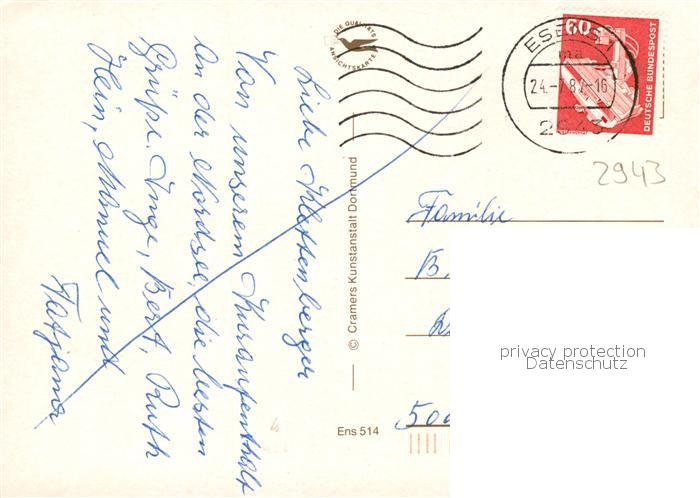 Liebe Klettenberger
Von unserem Kuraufenthalt
an der Nordsee, die besten
Grüße. Inge, Bert, Ruth
Hein, Manuel und
Tatjana
DIE QUALITÄTS
ANSICHTSKARTE
© Cramers Kunstanstalt Dortmund
Ens 514
ESENS 1
ma
24.-7.8 -16
2943
60
DEUTSCHE BUNDESPOST
2943
Familie
B,
500
privacy protection
Datenschutz